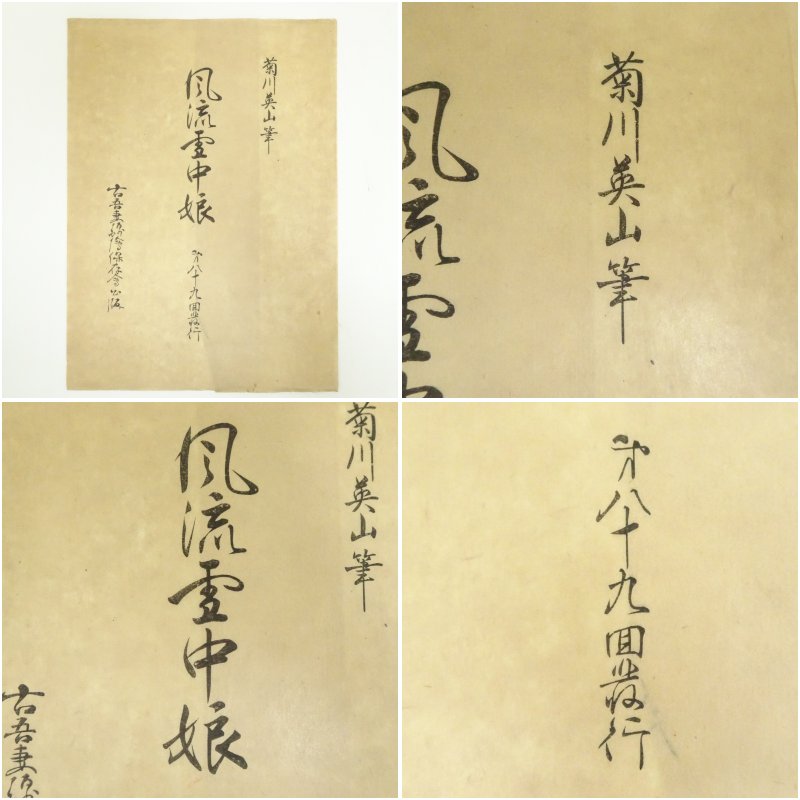 菊川英山筆
風流雪中娘
第八十九回發行
古吾妻錦繪保存会出版
菊川英山筆
風流雪
菊川英山筆
風流雪中娘
古吾妻錦
第八十九回發行